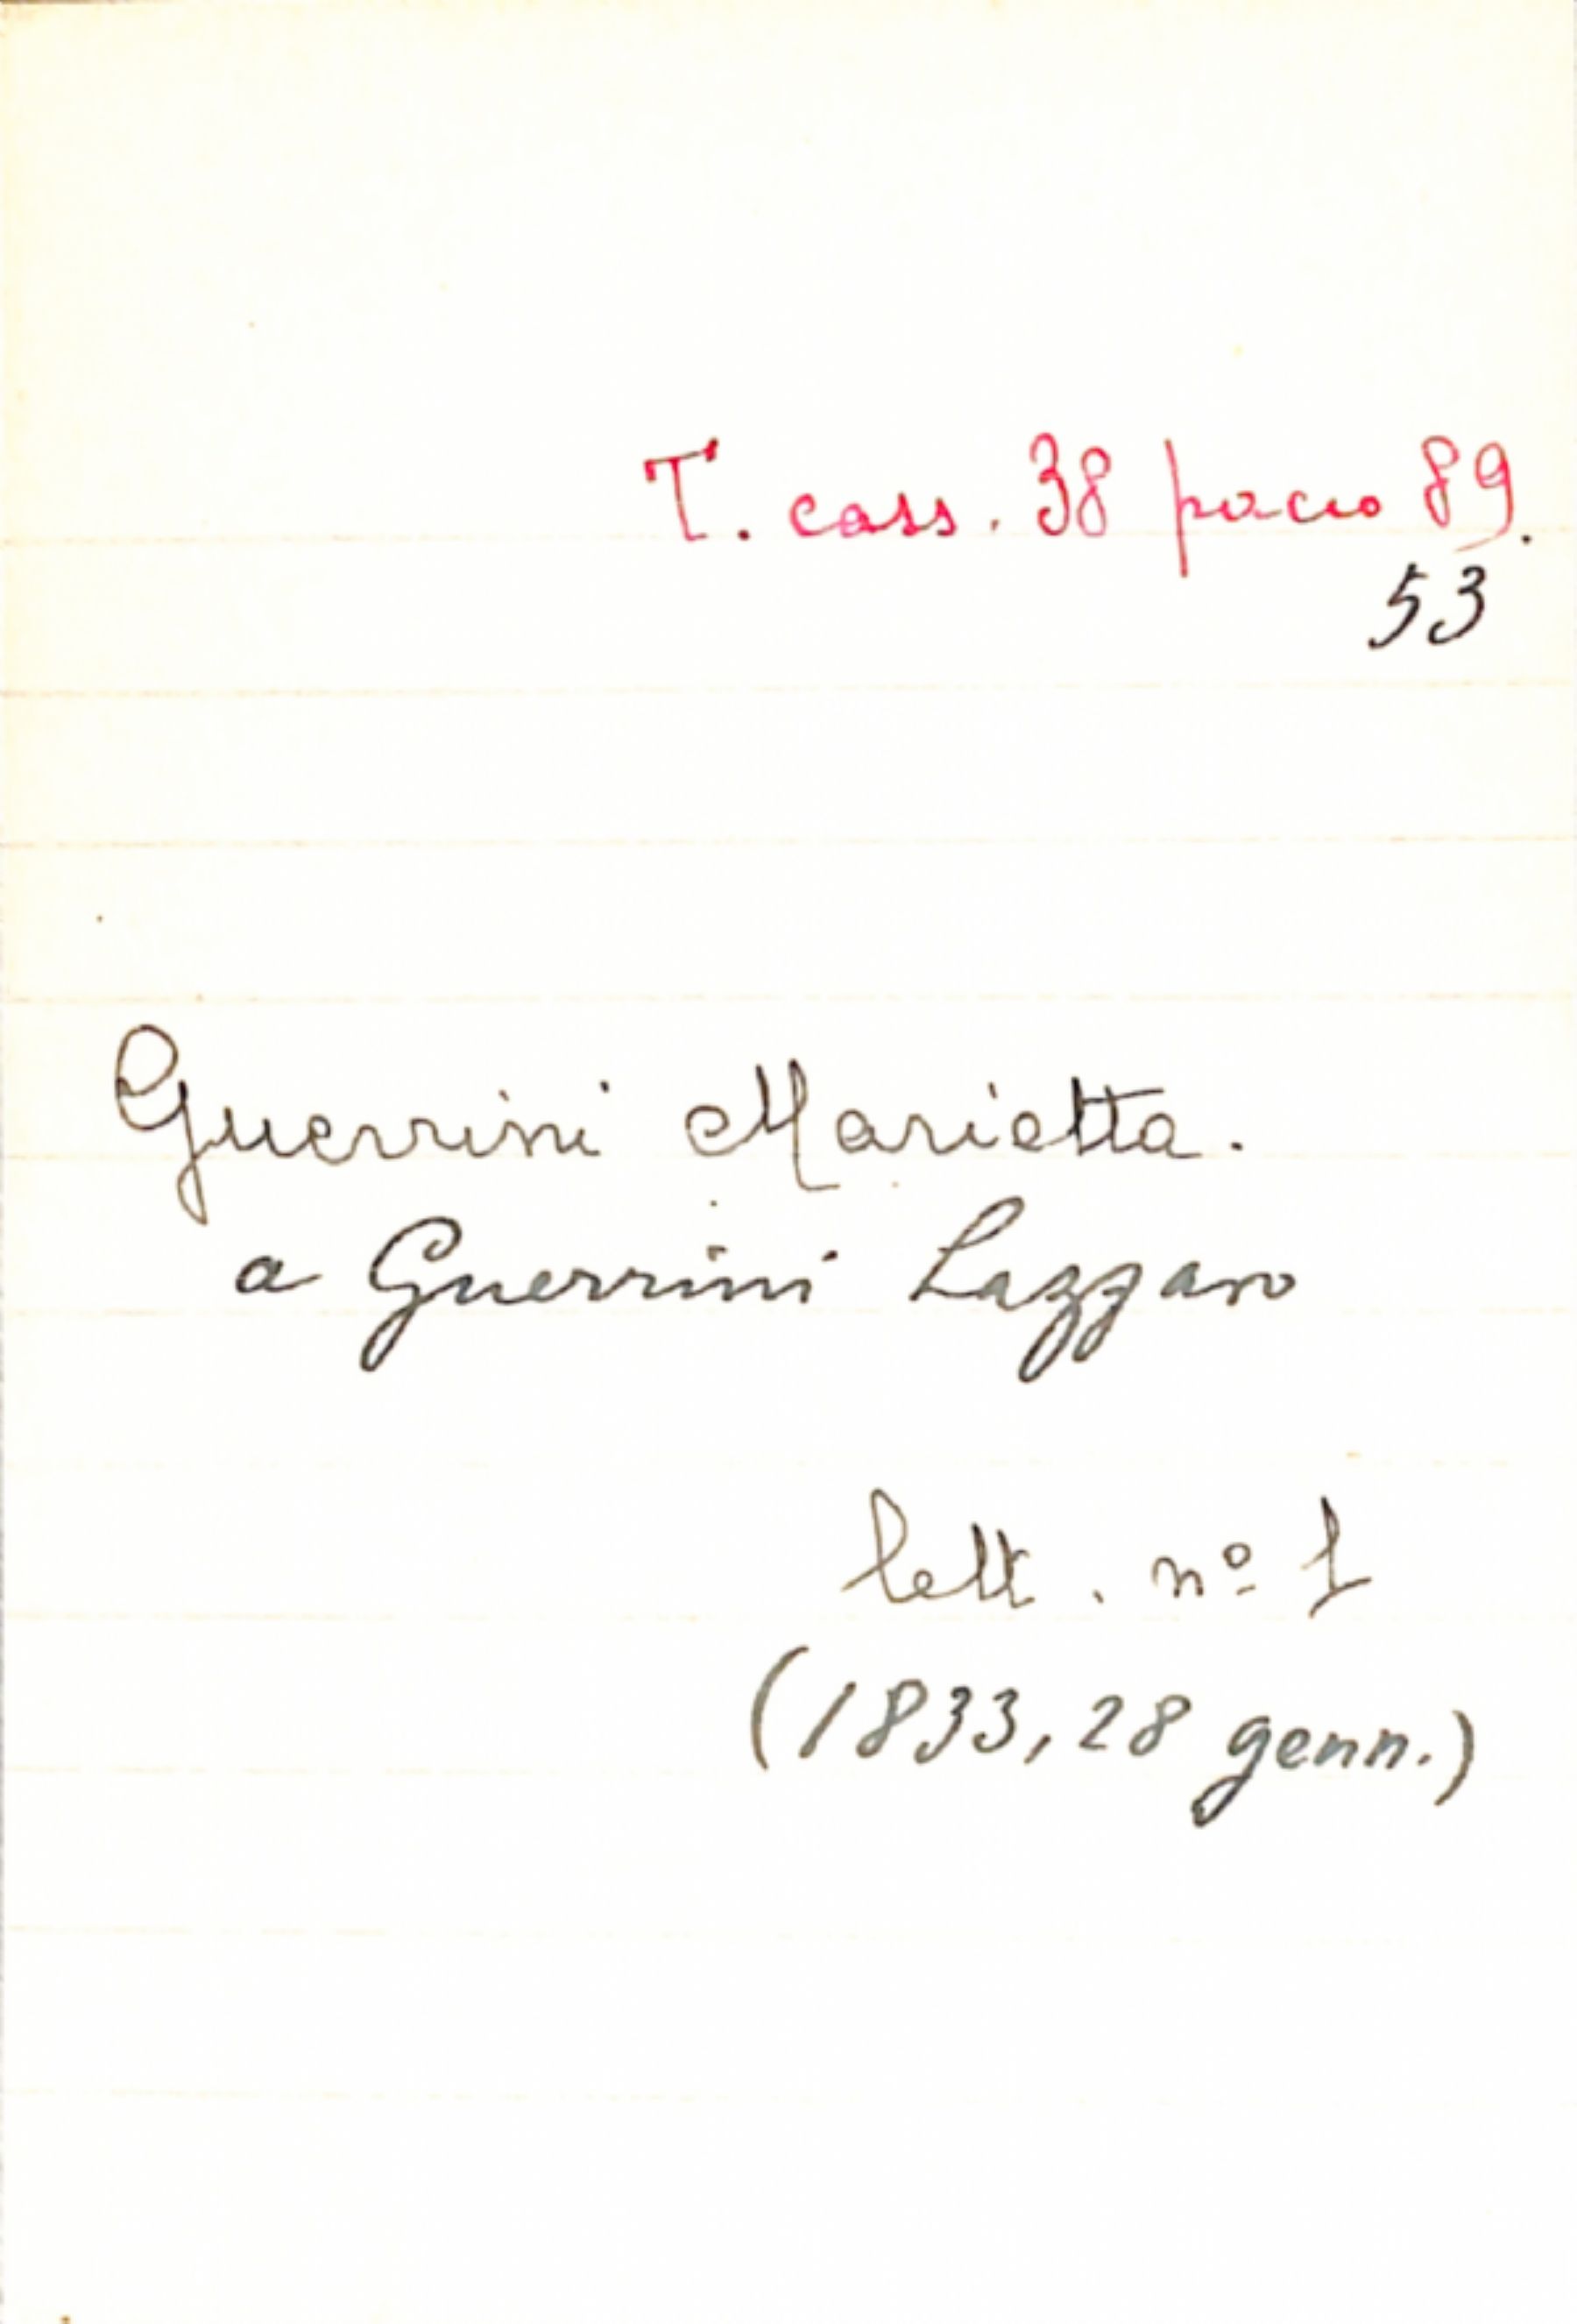 T. cass. 38 pacco 89.
53
Guerrini Marietta.
a Guerrini Lazzaro
lett. nº 1
(1833, 28 genn.)